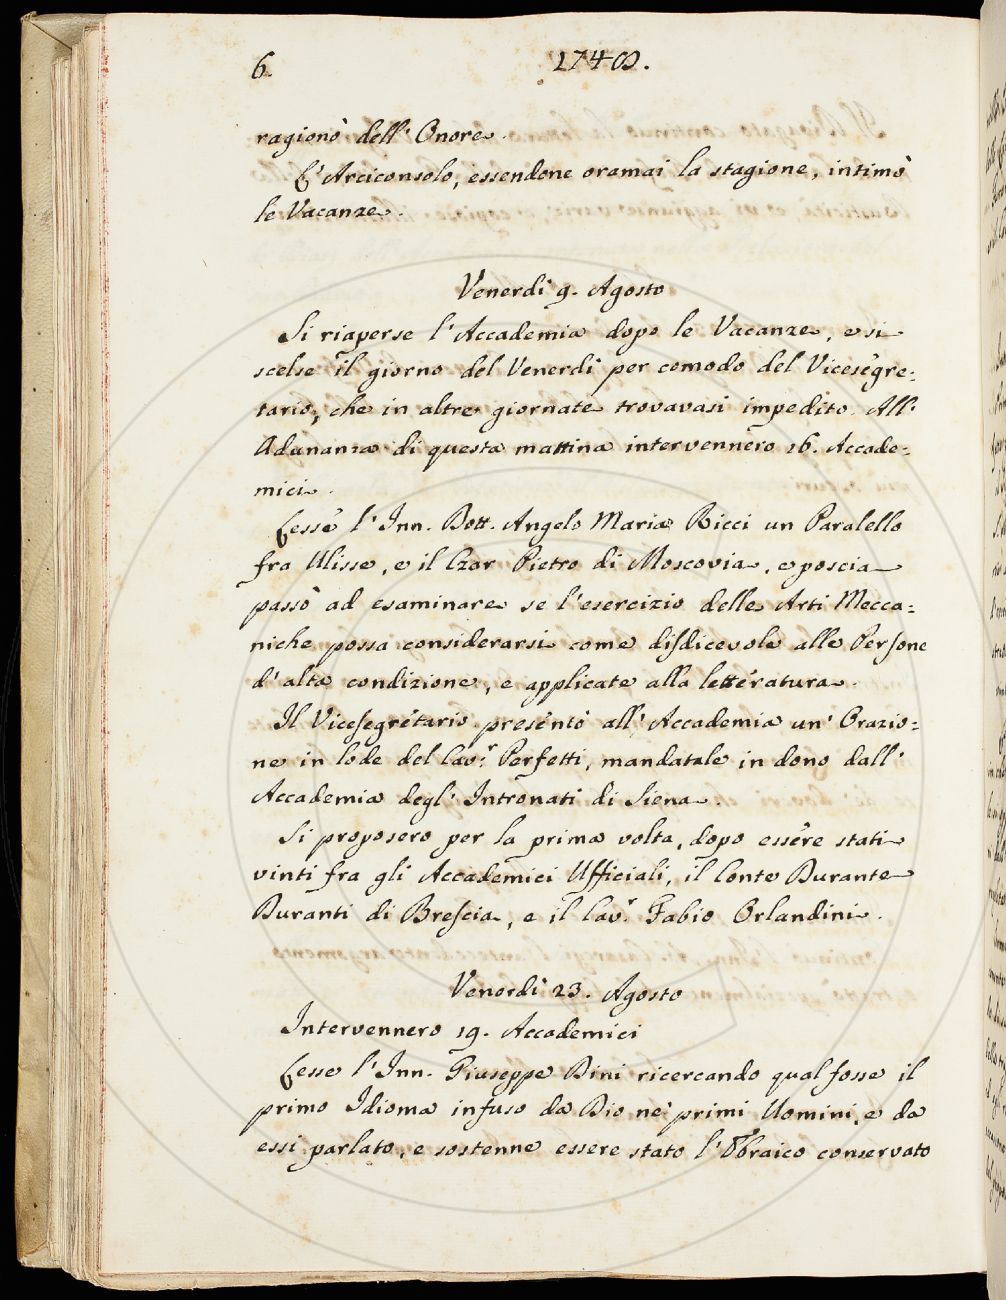 6. 1748.
ragionò dell' Onore.
L'Arciconsolo, essendone oramai la stagione, intimò
le Vacanze.
Venerdì 9. Agosto
Si riaperse l'Accademia dopo le Vacanze, e si
scelse il giorno del Venerdì per comodo del Vicesegre:
tario, che in altre giornate trovavasi impedito. All'
Adunanza di questa mattina intervennero 16. Accade:
mici.
Lesse l'Inn. Dott. Angelo Maria Ricci un Paralello
fra Ulisse, e il Czar Pietro di Moscovia, e poscia
passò ad esaminare se l'esercizio delle Arti Mecca:
niche possa considerarsi come disdicevole alle Persone
d'alta condizione, e applicate alla letteratura.
Il Vicesegretario presentò all'Accademia un' Orazio:
ne in lode del Cav.r Perfetti, mandatale in dono dall'
Accademia degl' Intronati di Siena.
Si proposero per la prima volta, dopo essere stati
vinti fra gli Accademici Ufficiali, il Conte Durante
Duranti di Brescia, e il Cav.r Fabio Orlandini.
Venerdì 23. Agosto
Intervennero 19. Accademici
Lesse l'Inn. Giuseppe Bini ricercando qual fosse il
primo Idioma infuso da Dio ne' primi Uomini, e da
essi parlato, e sostenne essere stato l'Ebraico conservato